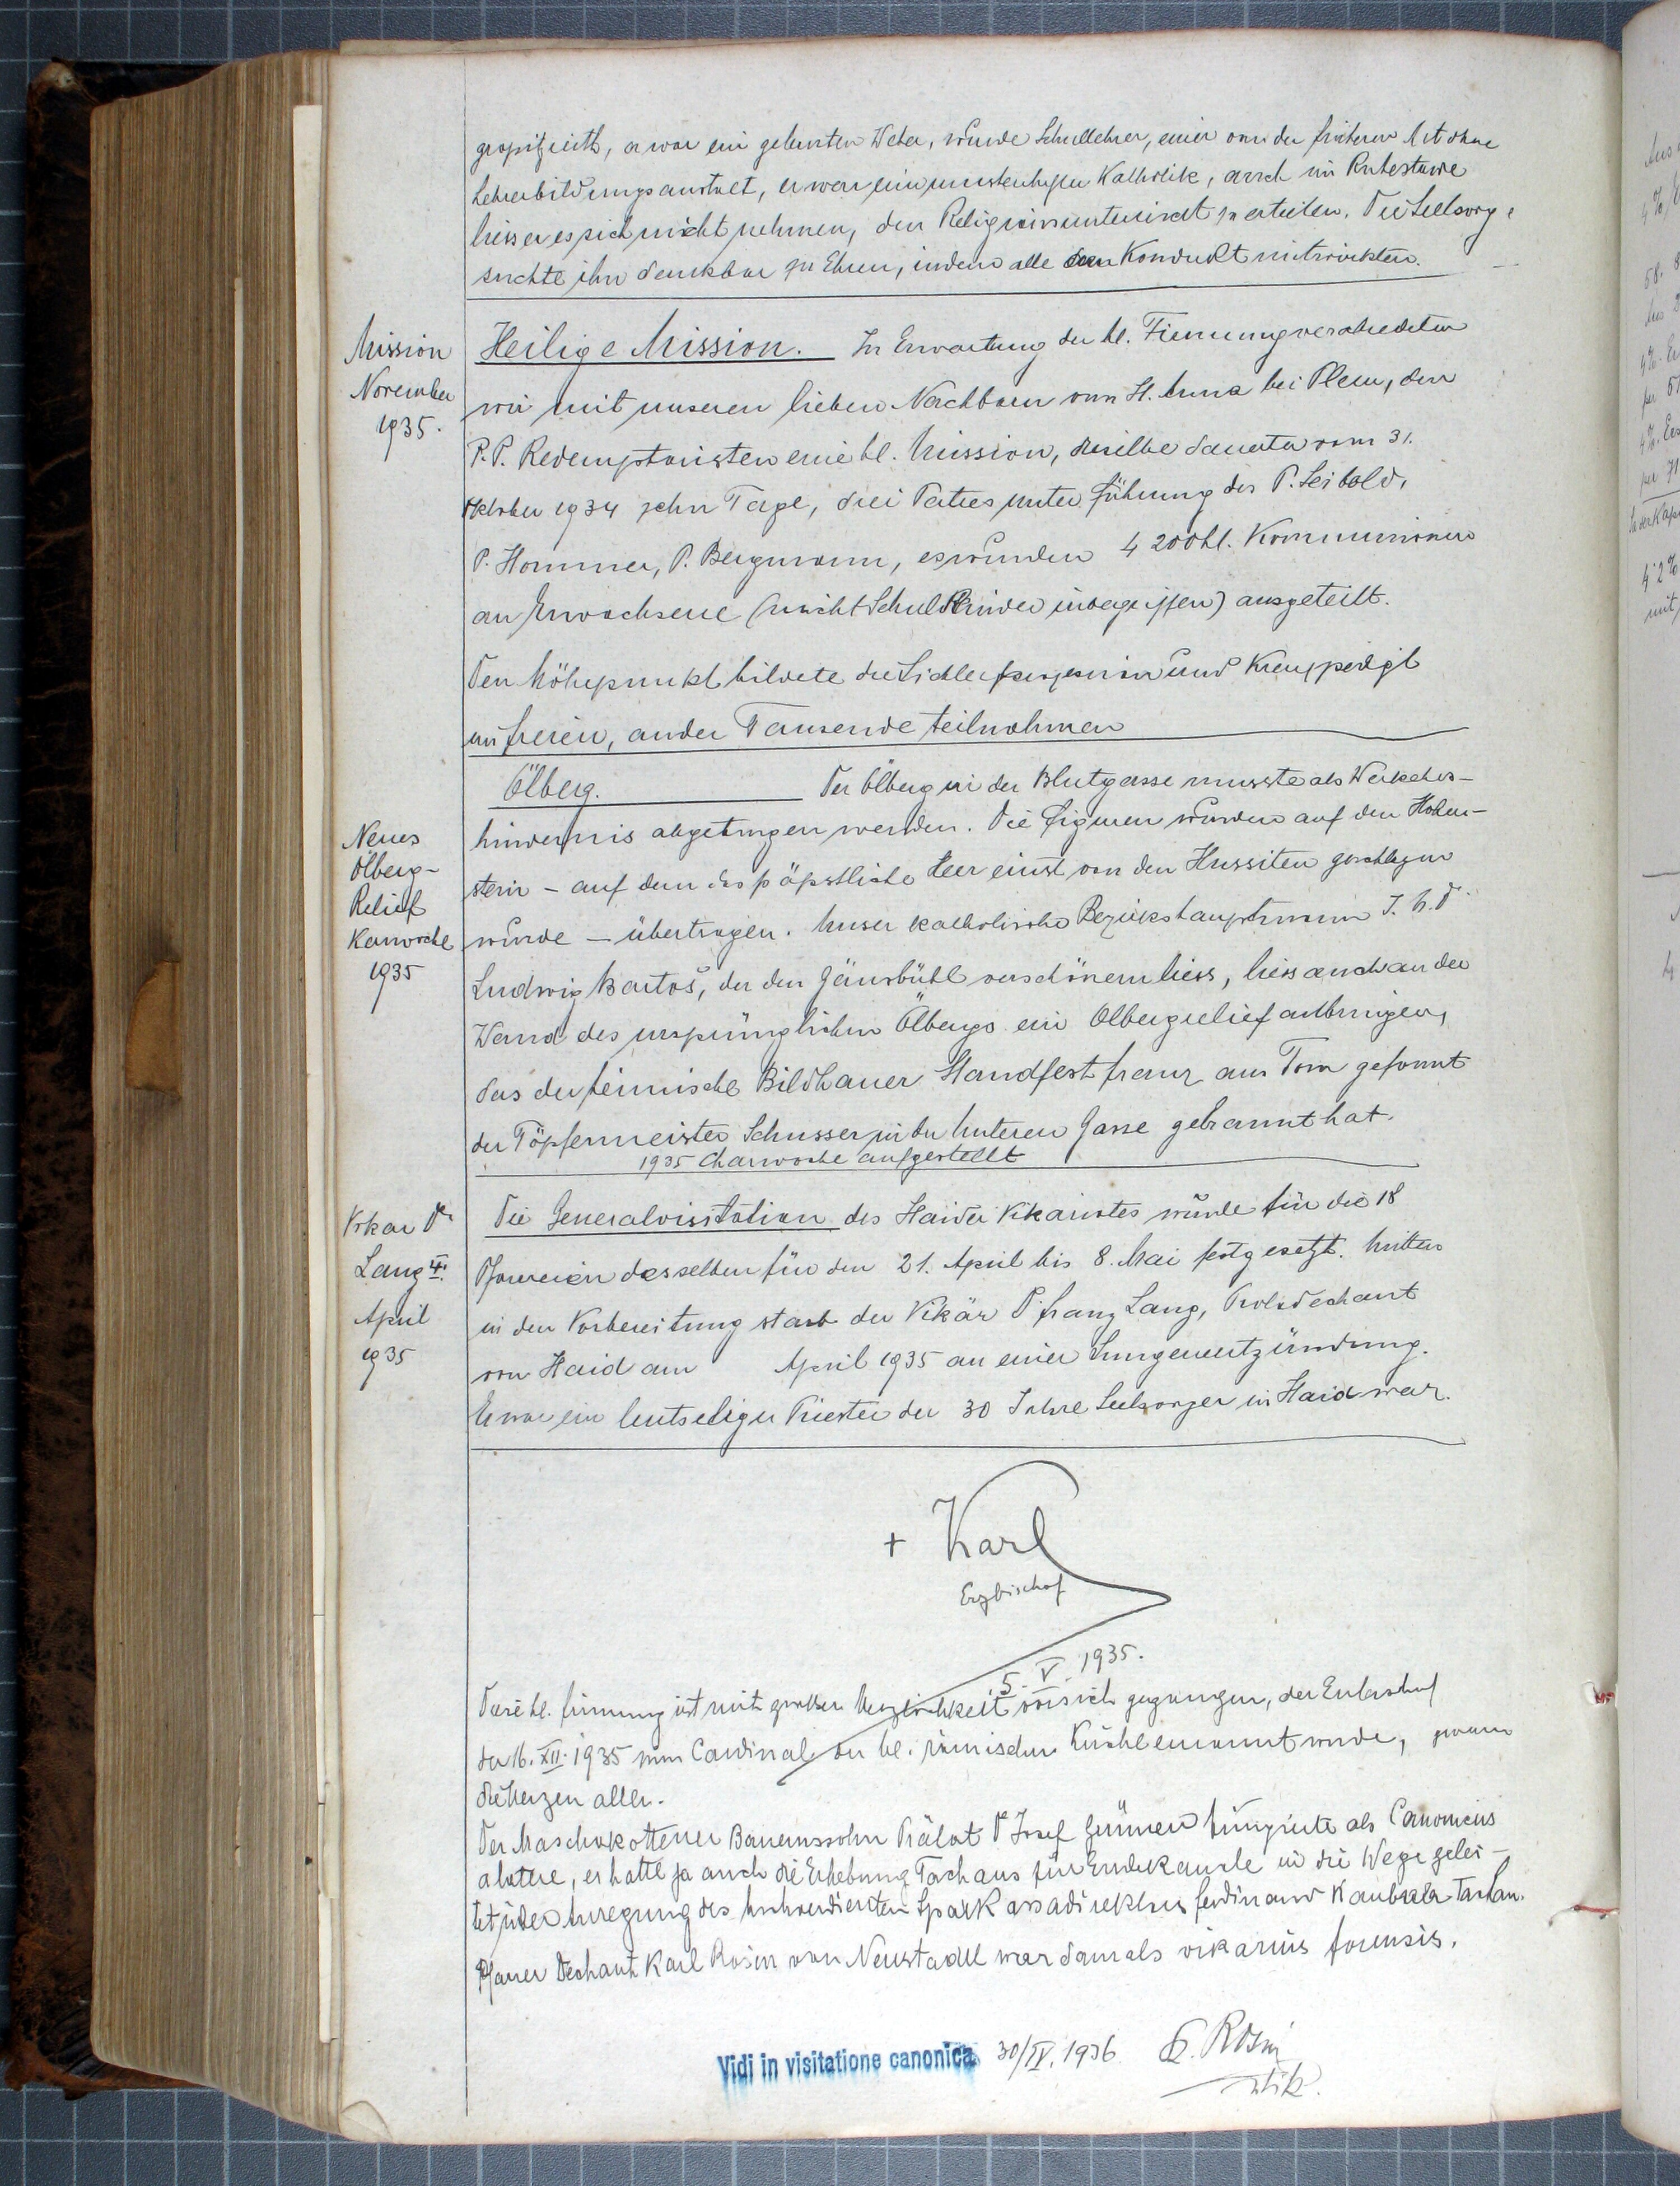 er war ein gelernter Weber, wurde Schullehrer, einer von der früheren Art ohne
Lehrerbildungsanstalt, er war ein musterhafter Katholik, auch im Ruhestande
liess er es sich nicht nehmen, den Religionsunterricht zu erteilen. Die Seelsorge
suchte ihn dankbar zu Ehren, indem alle den Kondukt mitwirkten.
Mission
November
1935.
Heilige Mission. In Erwartung der hl. Firmung verabredeten
wir mit unseren lieben Nachbarn von St. Anna bei Plan, den
P.P. Redemptoristen eine hl. Mission, dieselbe dauerte vom 31.
Oktober 1934 zehn Tage, drei Patres unter Führung des P. Leibold,
P. Hommer, P. Bergmann, es wurden 4200 hl. Kommunionen
an Erwachsene (nicht Schulkinder inbegriffen) ausgeteilt.
Den Höhepunkt bildete die Lichterprozession und Kreuzpredigt
im freien, an der Tausende teilnahmen
Neues
Ölberg-
Relief
Karwoche
1935
Ölberg. Der Ölberg in der Blutgasse musste als Verkehrs-
hindernis abgetragen werden. Die Figuren wurden auf den Hohen-
stein – auf dem das päpstliche Heer einst von den Hussiten geschlagen
wurde – übertragen. Unser katholische Bezirkshauptmann J. U. D
Ludwig Bartoš, der den Gänsbühl verschönern liess, liess auch an der
Wand des ursprünglichen Ölbergs ein Ölbergrelief anbringen,
das der heimische Bildhauer Standfest Franz aus Ton geformt
der Töpfermeister Schusser in der hinteren Gasse gebrannt hat.
1935 Charwoche aufgestellt
Vikar Dr
Lang †.
April
1935
Die Generalvisitation des Haider Vikariates wurde für die 18
Pfarreien desselben für den 21. April bis 8. Mai festgesetzt. Mitten
in den Vorbereitung starb der Vikär P. Franz Lang, Probsdechant
von Haid am April 1935 an einer Lungenentzündung.
Er war ein leutseliger Priester der 30 Jahre Seelsorger in Haid war.
+ Karl
Erzbischof
5. V. 1935.
Diese hl. Firmung ist mit großer Herzlichkeit vor sich gegangen, der Erzbischof
der 16. XII. 1935 zum Cardinal der hl. römischen Kirche ernannt wurde, gewann
die Herzen aller.
Der Maschakottener Bauernssohn Prälat Dr Josef fungierte als Canonicus
a latere, er hatte ja auch die Erhebung Tachaus zur Erzdekanale in die Wege gelei-
tet über Anregung des hochverdienten Sparkassadirektors Ferdinand Tachau.
Pfarrer Dechant Karl Rosin von Neustadtl war damals vikarius forensis.
Vidi in visitatione canonica 30/IV. 1936 K. Rosin